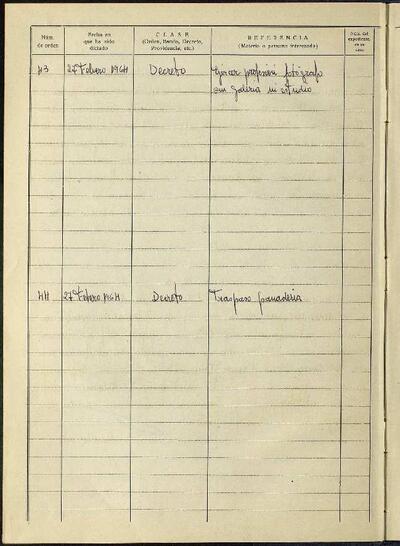 Núm. de orden
Fecha en que ha sido dictado
CLASE
(Orden, Bando, Decreto, Providencia, etc.)
REFERENCIA
(Materia o persona interesada)
Núm. del expediente, en su caso
43 27 Febrero 1964 Decreto Ejercer profesión fotógrafo
sin galería ni estudio
44 27 Febrero 1964 Decreto Traspaso panadería